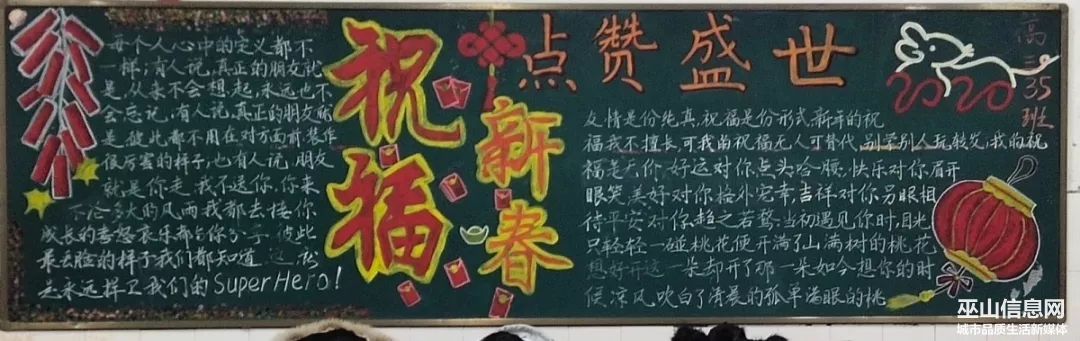 每个人心中的定义都不
一样,有人说,真正的朋友就
是,从来不会想起,永远也不
会忘记,有人说,真正的朋友就
是,彼此都不用在对方面前装作
很厉害的样子,也有人说,朋友
就是你走,我不送你,你来
多大的风雨我都去接你
成长的喜怒哀乐都与你分享,彼此
最丢脸的样子我们都知道
永远捍卫我们的SuperHero!
祝福
新春
点赞盛世
2020
高二35班
友情是份纯真,祝福是份形式新年的祝
福我不擅长,可我的祝福无人可替代,别学别人玩转发,我的祝
福是无价,好运对你点头哈腰,快乐对你眉开
眼笑,美好对你格外宠幸,吉祥对你另眼相
待平安对你趋之若鹜,当初遇见你时,目光
只轻轻一碰桃花便开满了山满树的桃花
想好开这一朵却开了那一朵如今想你的时
候,凉风吹白了清晨的孤单满眼的桃
巫山信息网
城市品质生活新媒体